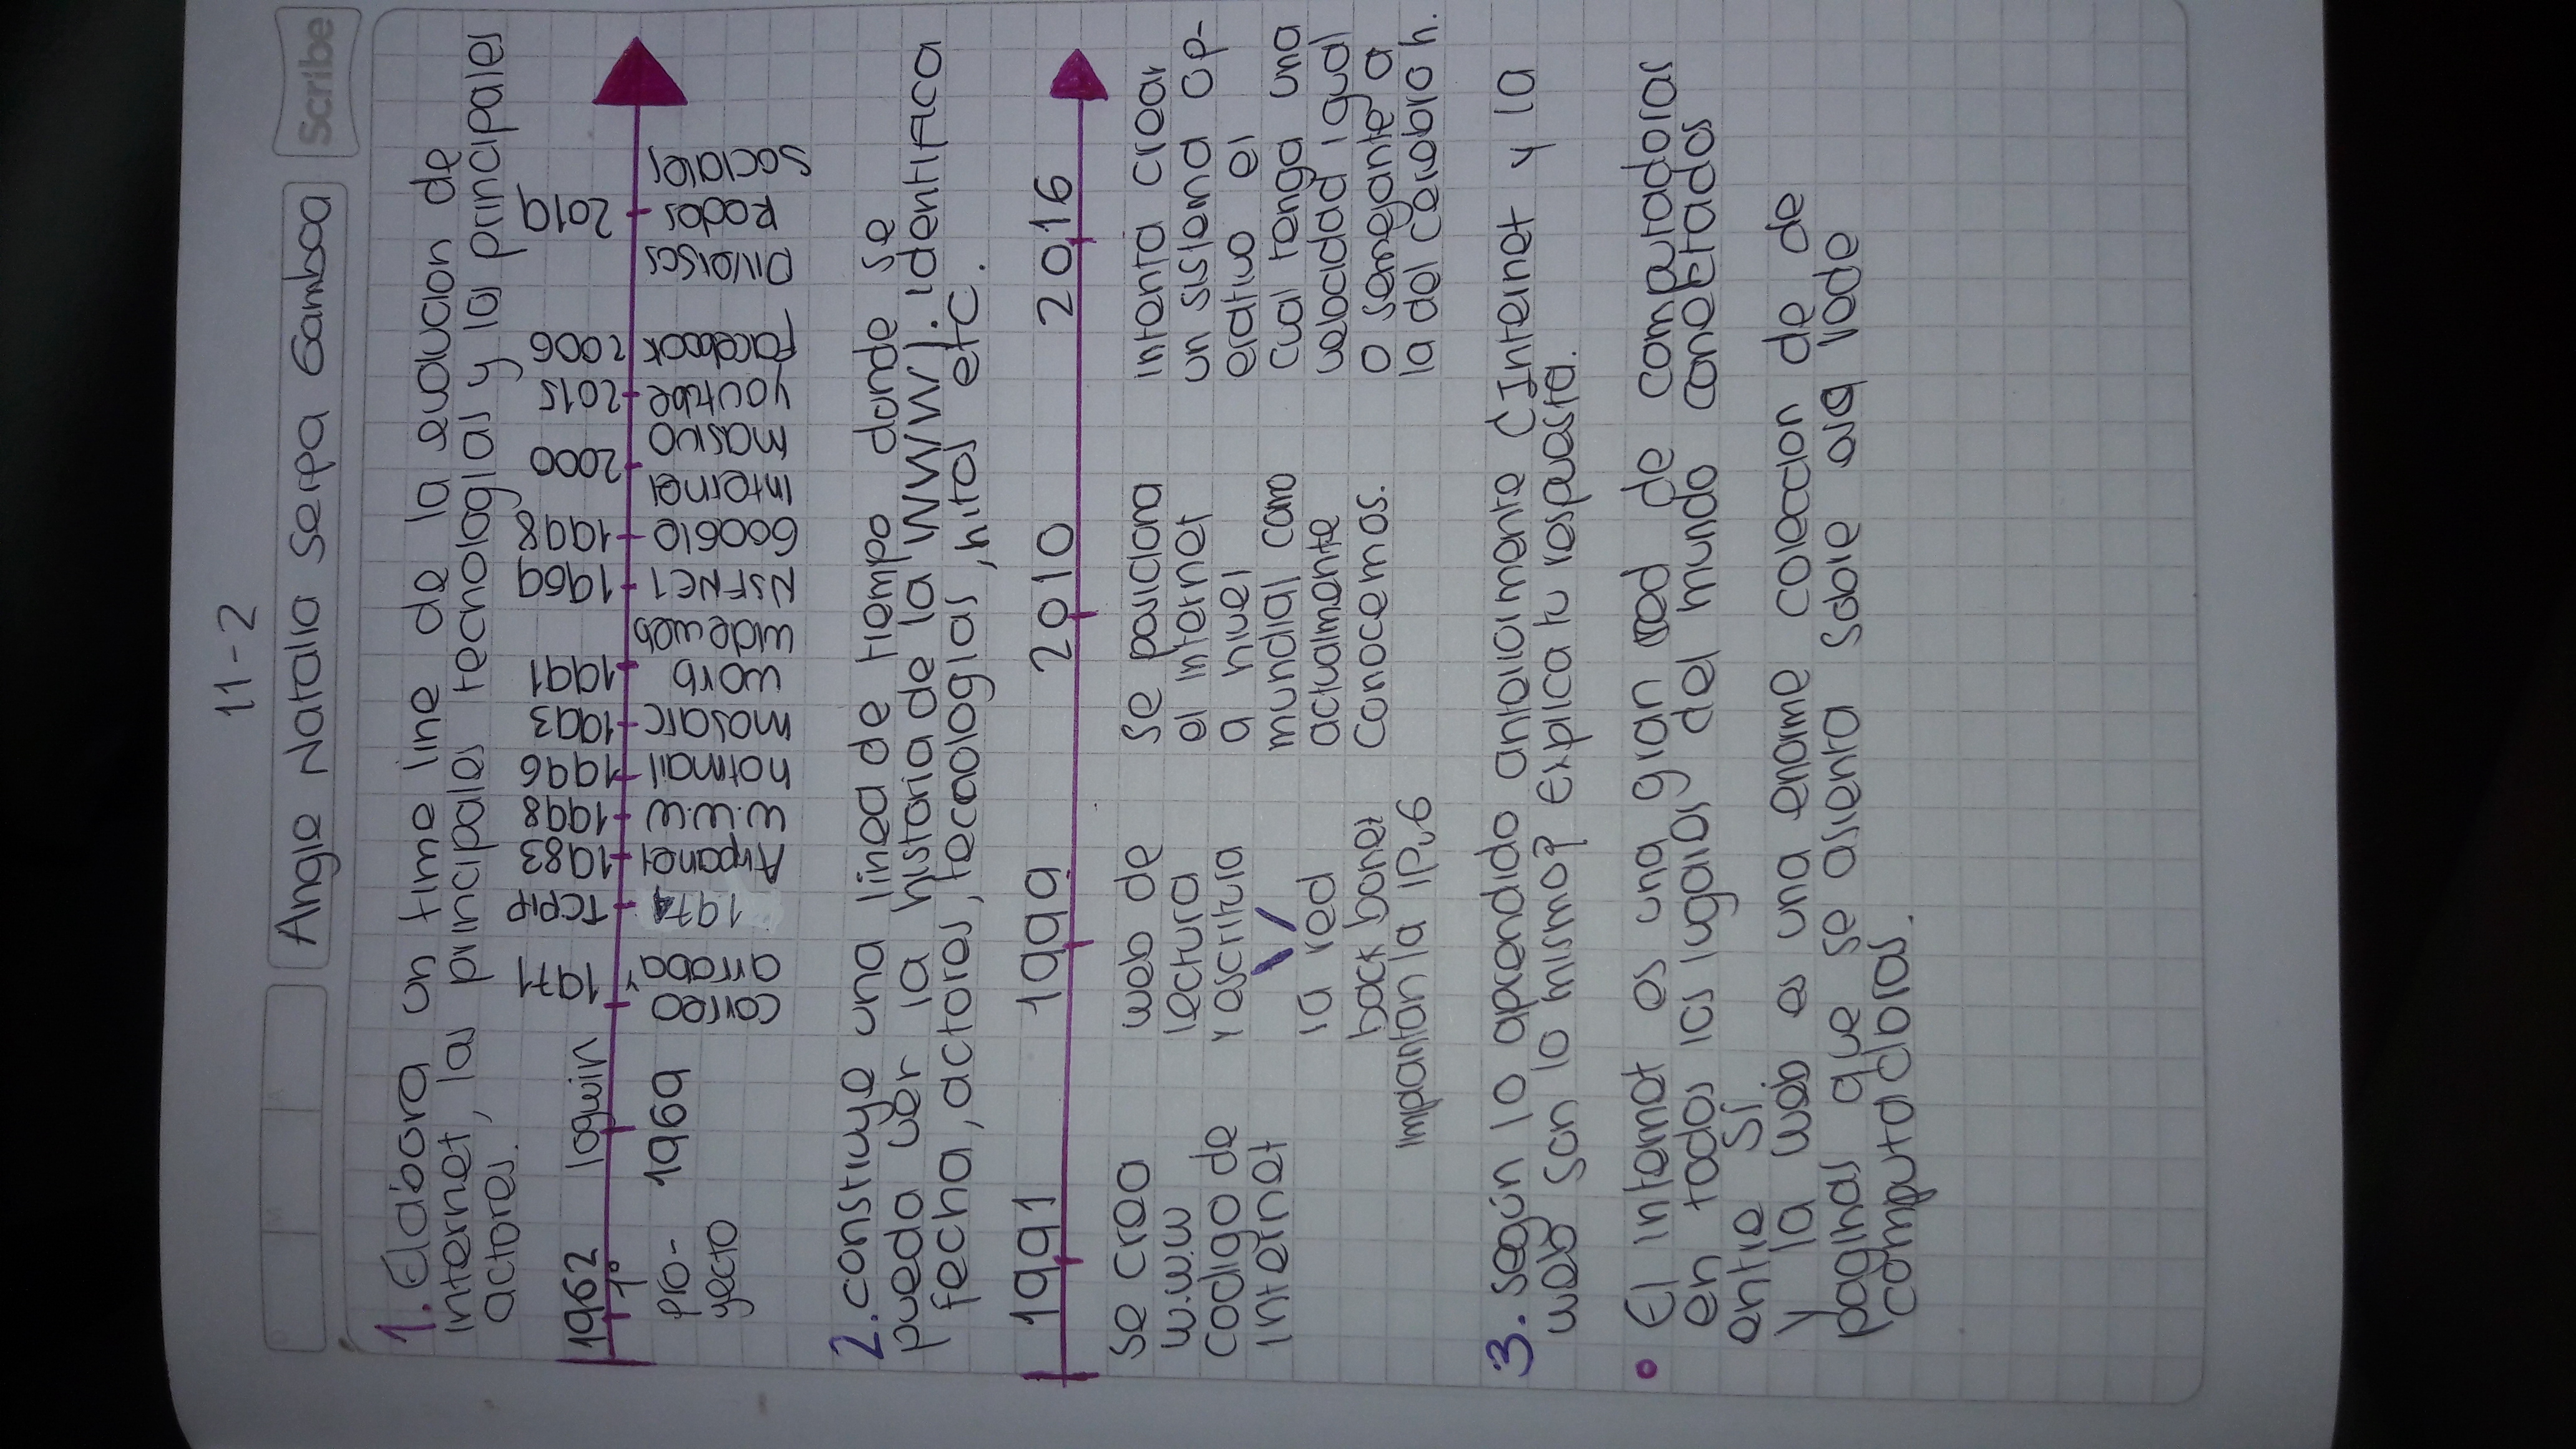 11-2
Angie Natalia Serpa Gamboa
Scribe
1. Elabora un time line de la evolucion de
internet, las principales tecnologias y los principales
actores.
1962 loquin 1971 TCPIP 1983 1998 1996 1993 1991 1969 1998 2000 2015 2006 2019
1°
pro-
yecto
1969
correo y
arroba
1974
Arpanet
w.w.w
hotmail
mosarc
worb
wideweb
NSFNET
Google
internet
masivo
youtube
facebook
Diversas
Redes
sociales
2. construye una linea de tiempo donde se
pueda ver la historia de la WWW). identifica
fecha, actores, tecnologias, hitos etc.
1991 1999 2010 2016
se crea
w.w.w
codigo de
internet
web de
lectura
y escritura
la red
back bonet
implantan la IPv6
se posiciona
el internet
a nivel
mundial como
actualmente
conocemos.
intenta crear
un sistema op-
erativo el
cual tenga una
velocidad igual
o semejante a
la del cerebro h.
3. según lo aprendido anteriormente ¿Internet y la
web son lo mismo? Explica tu respuesta.
• El internet es una gran red de computadoras
en todos los lugares del mundo conectados
entre sí
y la web es una enorme coleccion de de
paginas que se asienta sobre esa rede
computadoras.